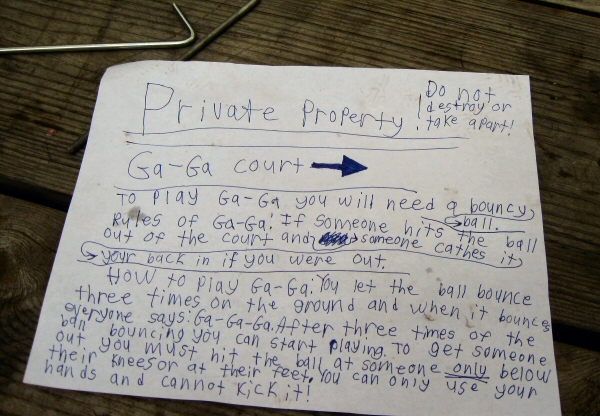 Private Property!
Do not
destroy or
take apart!
Ga-Ga court
To play Ga-Ga you will need a bouncy
ball.
Rules of Ga-Ga: If someone hits the ball
out of the court and someone cathes it,
your back in if you were out.
How to play Ga-Ga: You let the ball bounce
three times on the ground and when it bounces
everyone says: Ga-Ga-Ga. After three times of the
ball bouncing you can start playing. To get someone
out you must hit the ball at someone only below
their knees or at their feet. You can only use your
hands and cannot kick it!